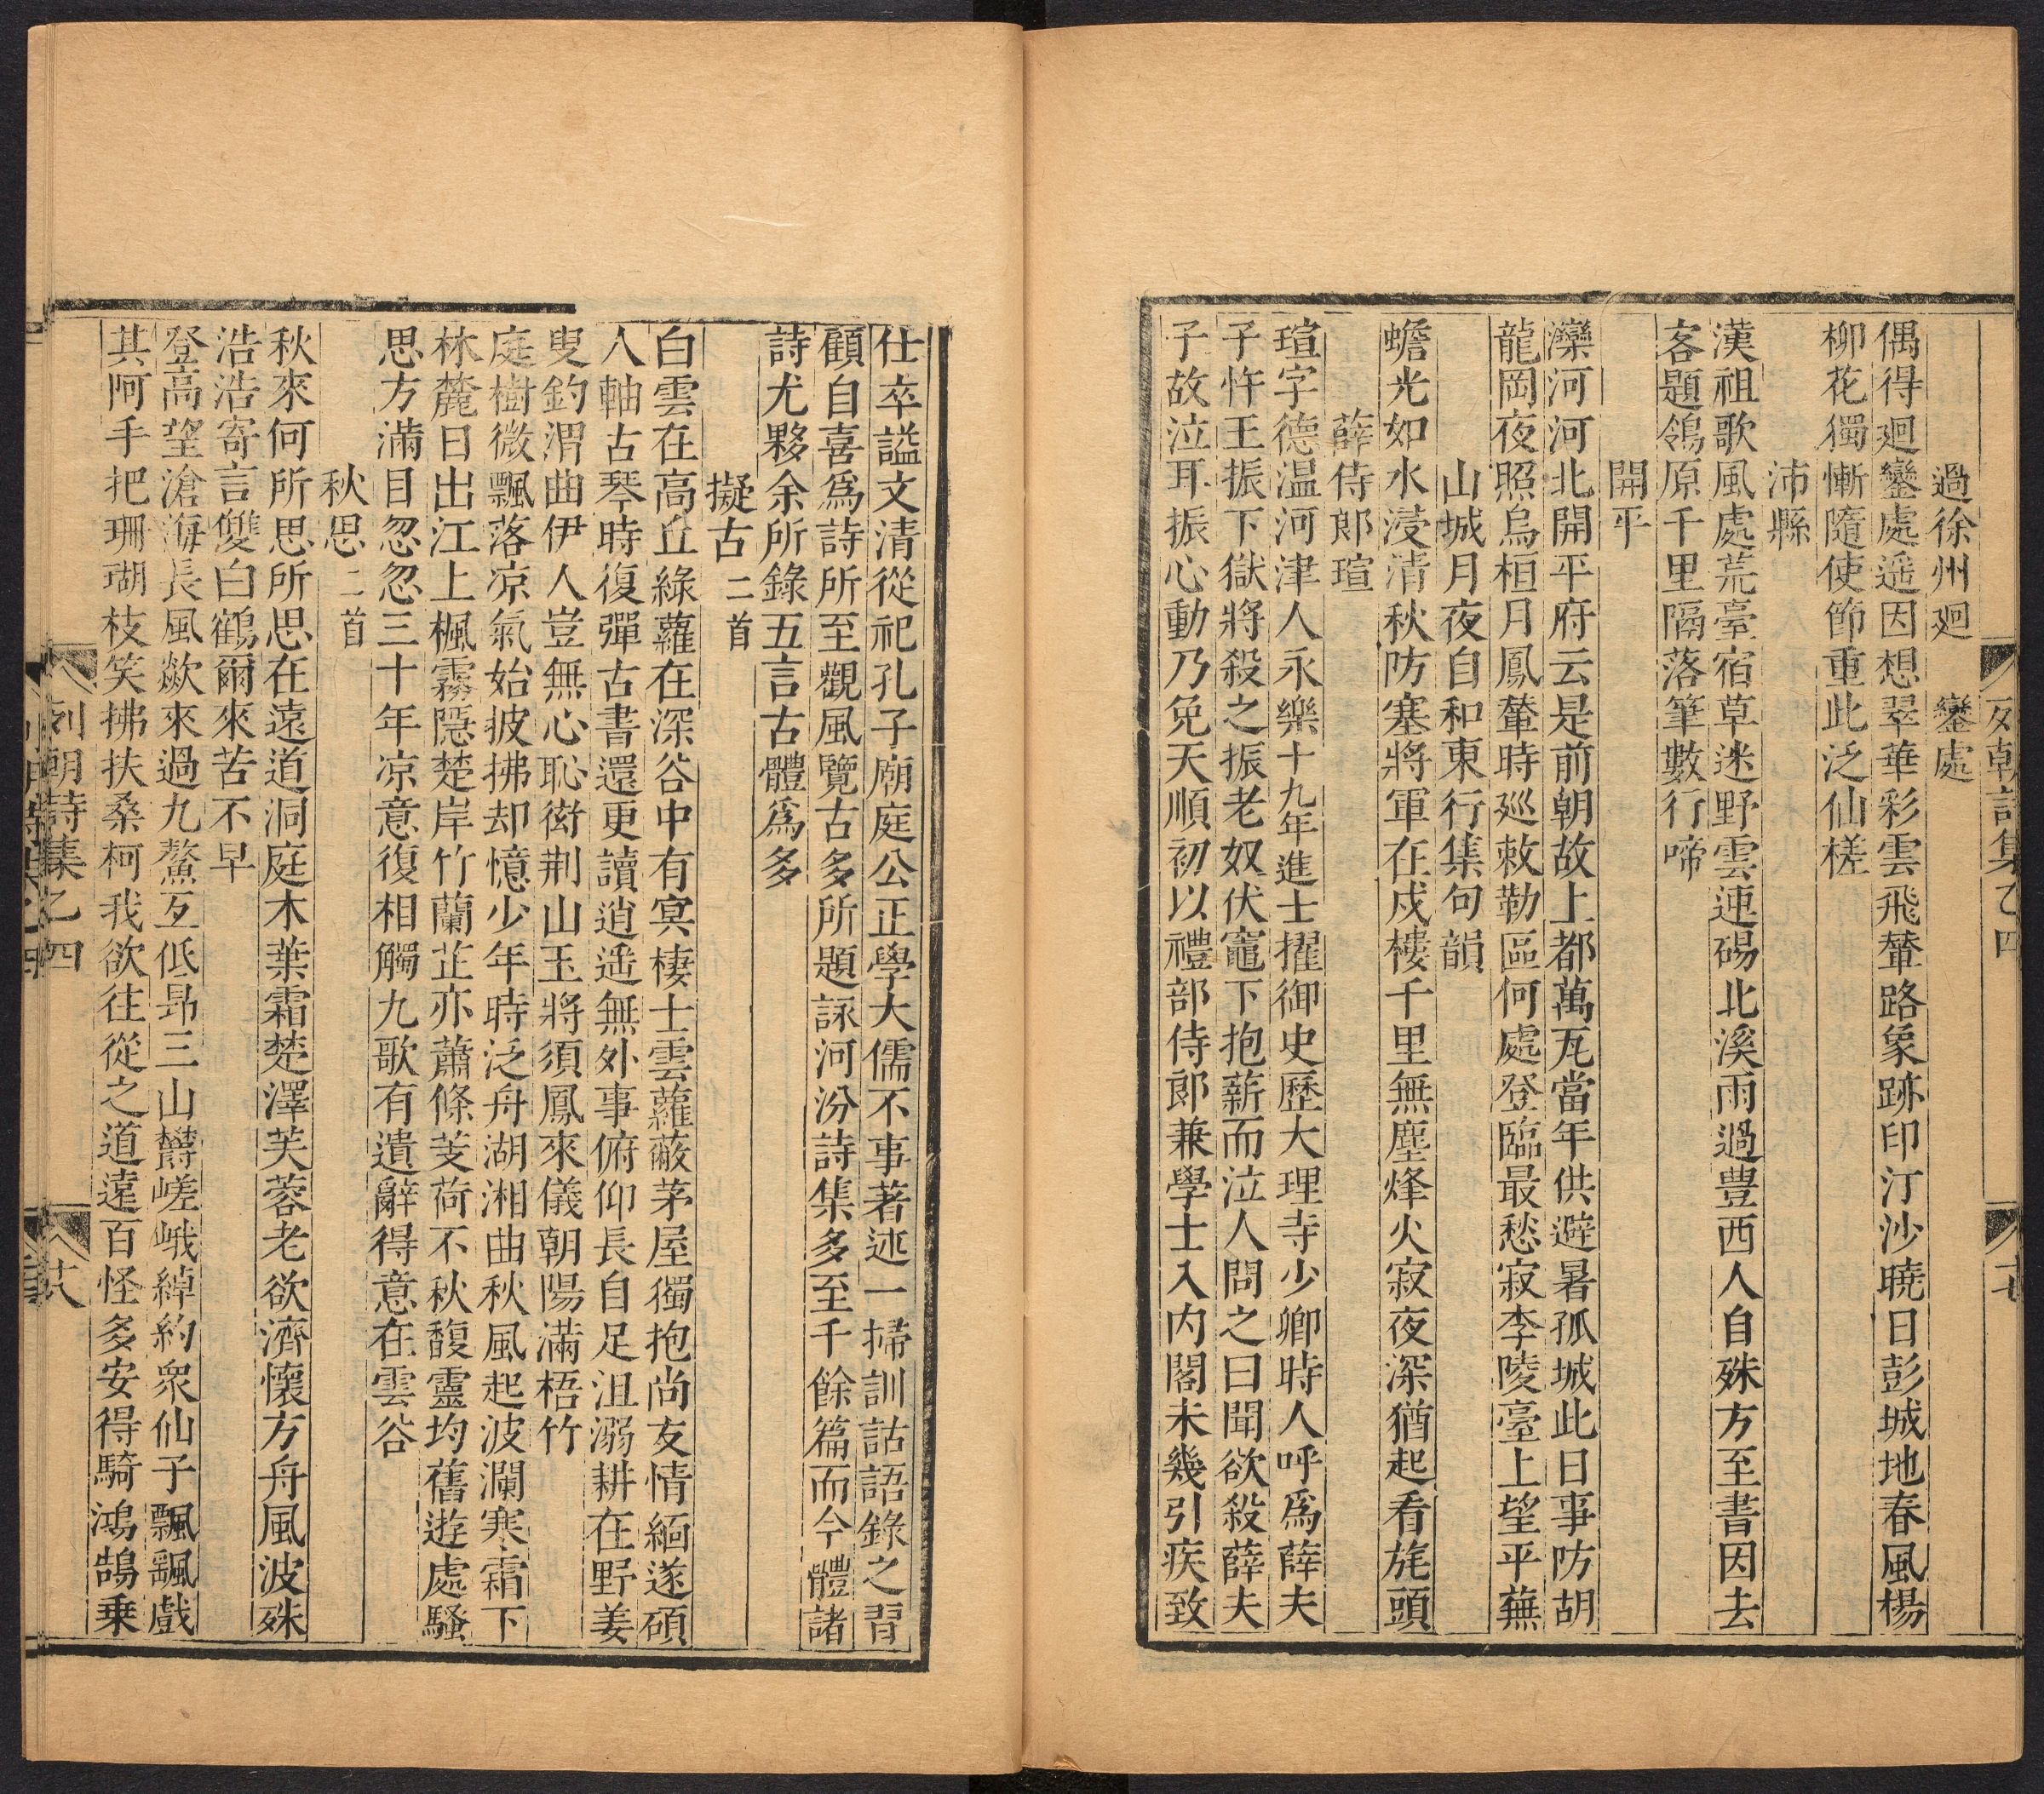 列朝詩集乙四
過徐州廻鑾處
偶得廻鑾處遥因想翠華彩雲飛輦路象跡印汀沙曉日彭城地春風楊
柳花獨慚隨使節重此泛仙槎
沛縣
漢祖歌風處荒臺宿草迷野雲連碭北溪雨過豊西人自殊方至書因去
客題鴒原千里隔落筆數行啼
開平
灤河河北開平府云是前朝故上都萬瓦當年供避暑孤城此日事防胡
龍岡夜照烏桓月鳳輦時廵敕勒區何處登臨最愁寂李陵臺上望平蕪
山城月夜自和東行集句韻
蟾光如水浸清秋防塞將軍在戍樓千里無塵烽火寂夜深猶起看旄頭
薛侍郎瑄
瑄字德温河津人永樂十九年進士擢御史歷大理寺少卿時人呼爲薛夫
子忤王振下獄將殺之振老奴伏竈下抱薪而泣人問之曰聞欲殺薛夫
子故泣耳振心動乃免天順初以禮部侍郎兼學士入内閣未幾引疾致
仕卒謚文清從祀孔子廟庭公正學大儒不事著述一掃訓詁語錄之習
顧自喜爲詩所至觀風覽古多所題詠河汾詩集多至千餘篇而今體諸
詩尤夥余所錄五言古體爲多
擬古二首
白雲在高丘綠蘿在深谷中有冥棲士雲蘿蔽茅屋獨抱尚友情緬遂碩
人軸古琴時復彈古書還更讀逍遥無外事俯仰長自足沮溺耕在野姜
叟釣渭曲伊人豈無心恥衒荆山玉將須鳳來儀朝陽滿梧竹
庭樹微飄落凉氣始披拂却憶少年時泛舟湖湘曲秋風起波瀾寒霜下
林麓日出江上楓霧隱楚岸竹蘭芷亦蕭條芰荷不秋馥靈均舊遊處騷
思方滿目忽忽三十年凉意復相觸九歌有遺辭得意在雲谷
秋思二首
秋來何所思所思在遠道洞庭木葉霜楚澤芙蓉老欲濟懷方舟風波殊
浩浩寄言雙白鶴爾來苦不早
登高望滄海長風歘來過九鰲互低昂三山欝嵯峨綽約衆仙子飄颻戲
其阿手把珊瑚枝笑拂扶桑柯我欲往從之道遠百怪多安得騎鴻鵠乗
列朝詩集乙四